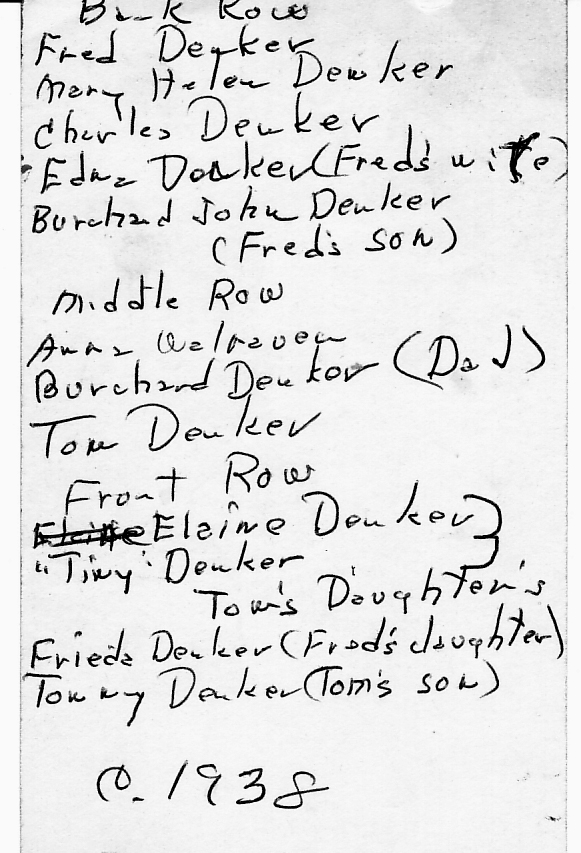 Back Row
Fred Denker
Mary Helen Denker
Charles Denker
Edna Denker (Fred's wife)
Burchard John Denker
(Fred's son)
Middle Row
Anna Walraven
Burchard Denker (Dad)
Tom Denker
Front Row
Elaine Denker
"Tiny" Denker
Tom's Daughter's
Frieda Denker (Fred's daughter)
Tommy Denker (Tom's son)
C. 1938